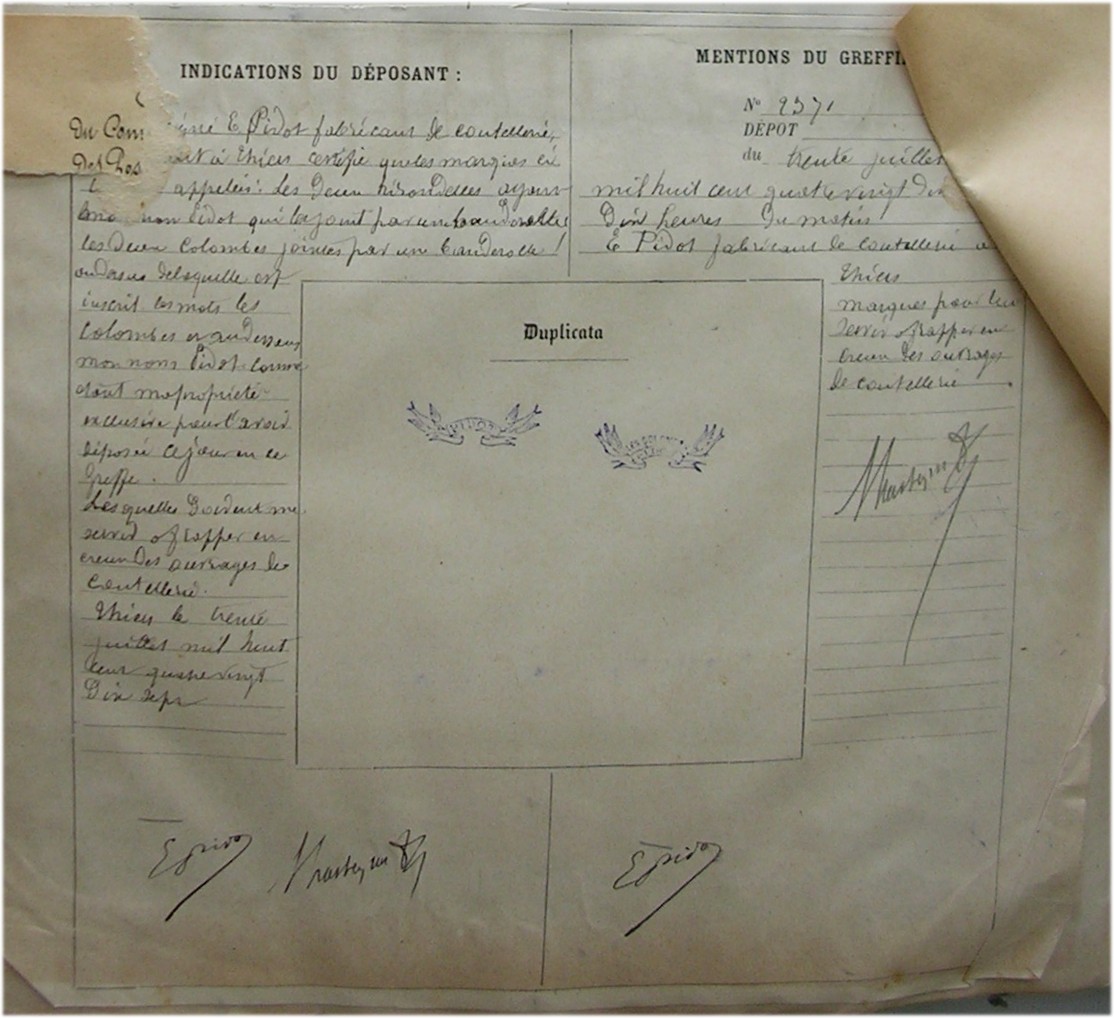 INDICATIONS DU DÉPOSANT :
Du Com
Des Pros
E Pidot fabricant de coutellerie,
à Thiers certifie que les marques
appelées: Les Deux hirondelles ayant
mon Pidot qui les joint par un banderolle
les deux Colombes jointes par un banderolle
au dessus de laquelle est
inscrit les mots les
Colombes et au dessous
mon nom Pidot comme
étant ma propriété
exclusive pour l'avoir
déposée ce jour en ce
Greffe.
Lesquelles doivent me
servir à frapper en
creux des ouvrages de
Coutellerie.
Thiers le trente
juillet mil huit
cent quatre vingt
Dix sept
MENTIONS DU GREFFI
N° 2371
DÉPOT
du trente juillet
mil huit cent quatre vingt dix
Dix heures du matin
E Pidot fabricant de coutellerie a
Thiers
marques pour lui
servir à frapper en
creux des ouvrages
de coutellerie
Duplicata
PIDOT
E Pidot
E Pidot